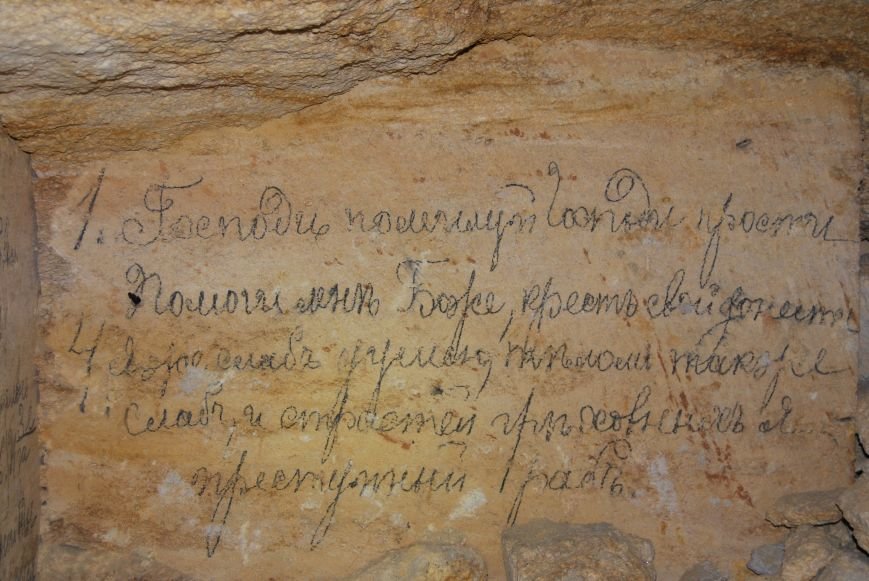 1. Господи помилуй Господи прости
Помоги мнѣ Боже, крестъ свой донести
4 Я же слабъ умомъ, тѣломъ также
1. слабъ, и страстей грѣховныхъ я
преступный рабъ.